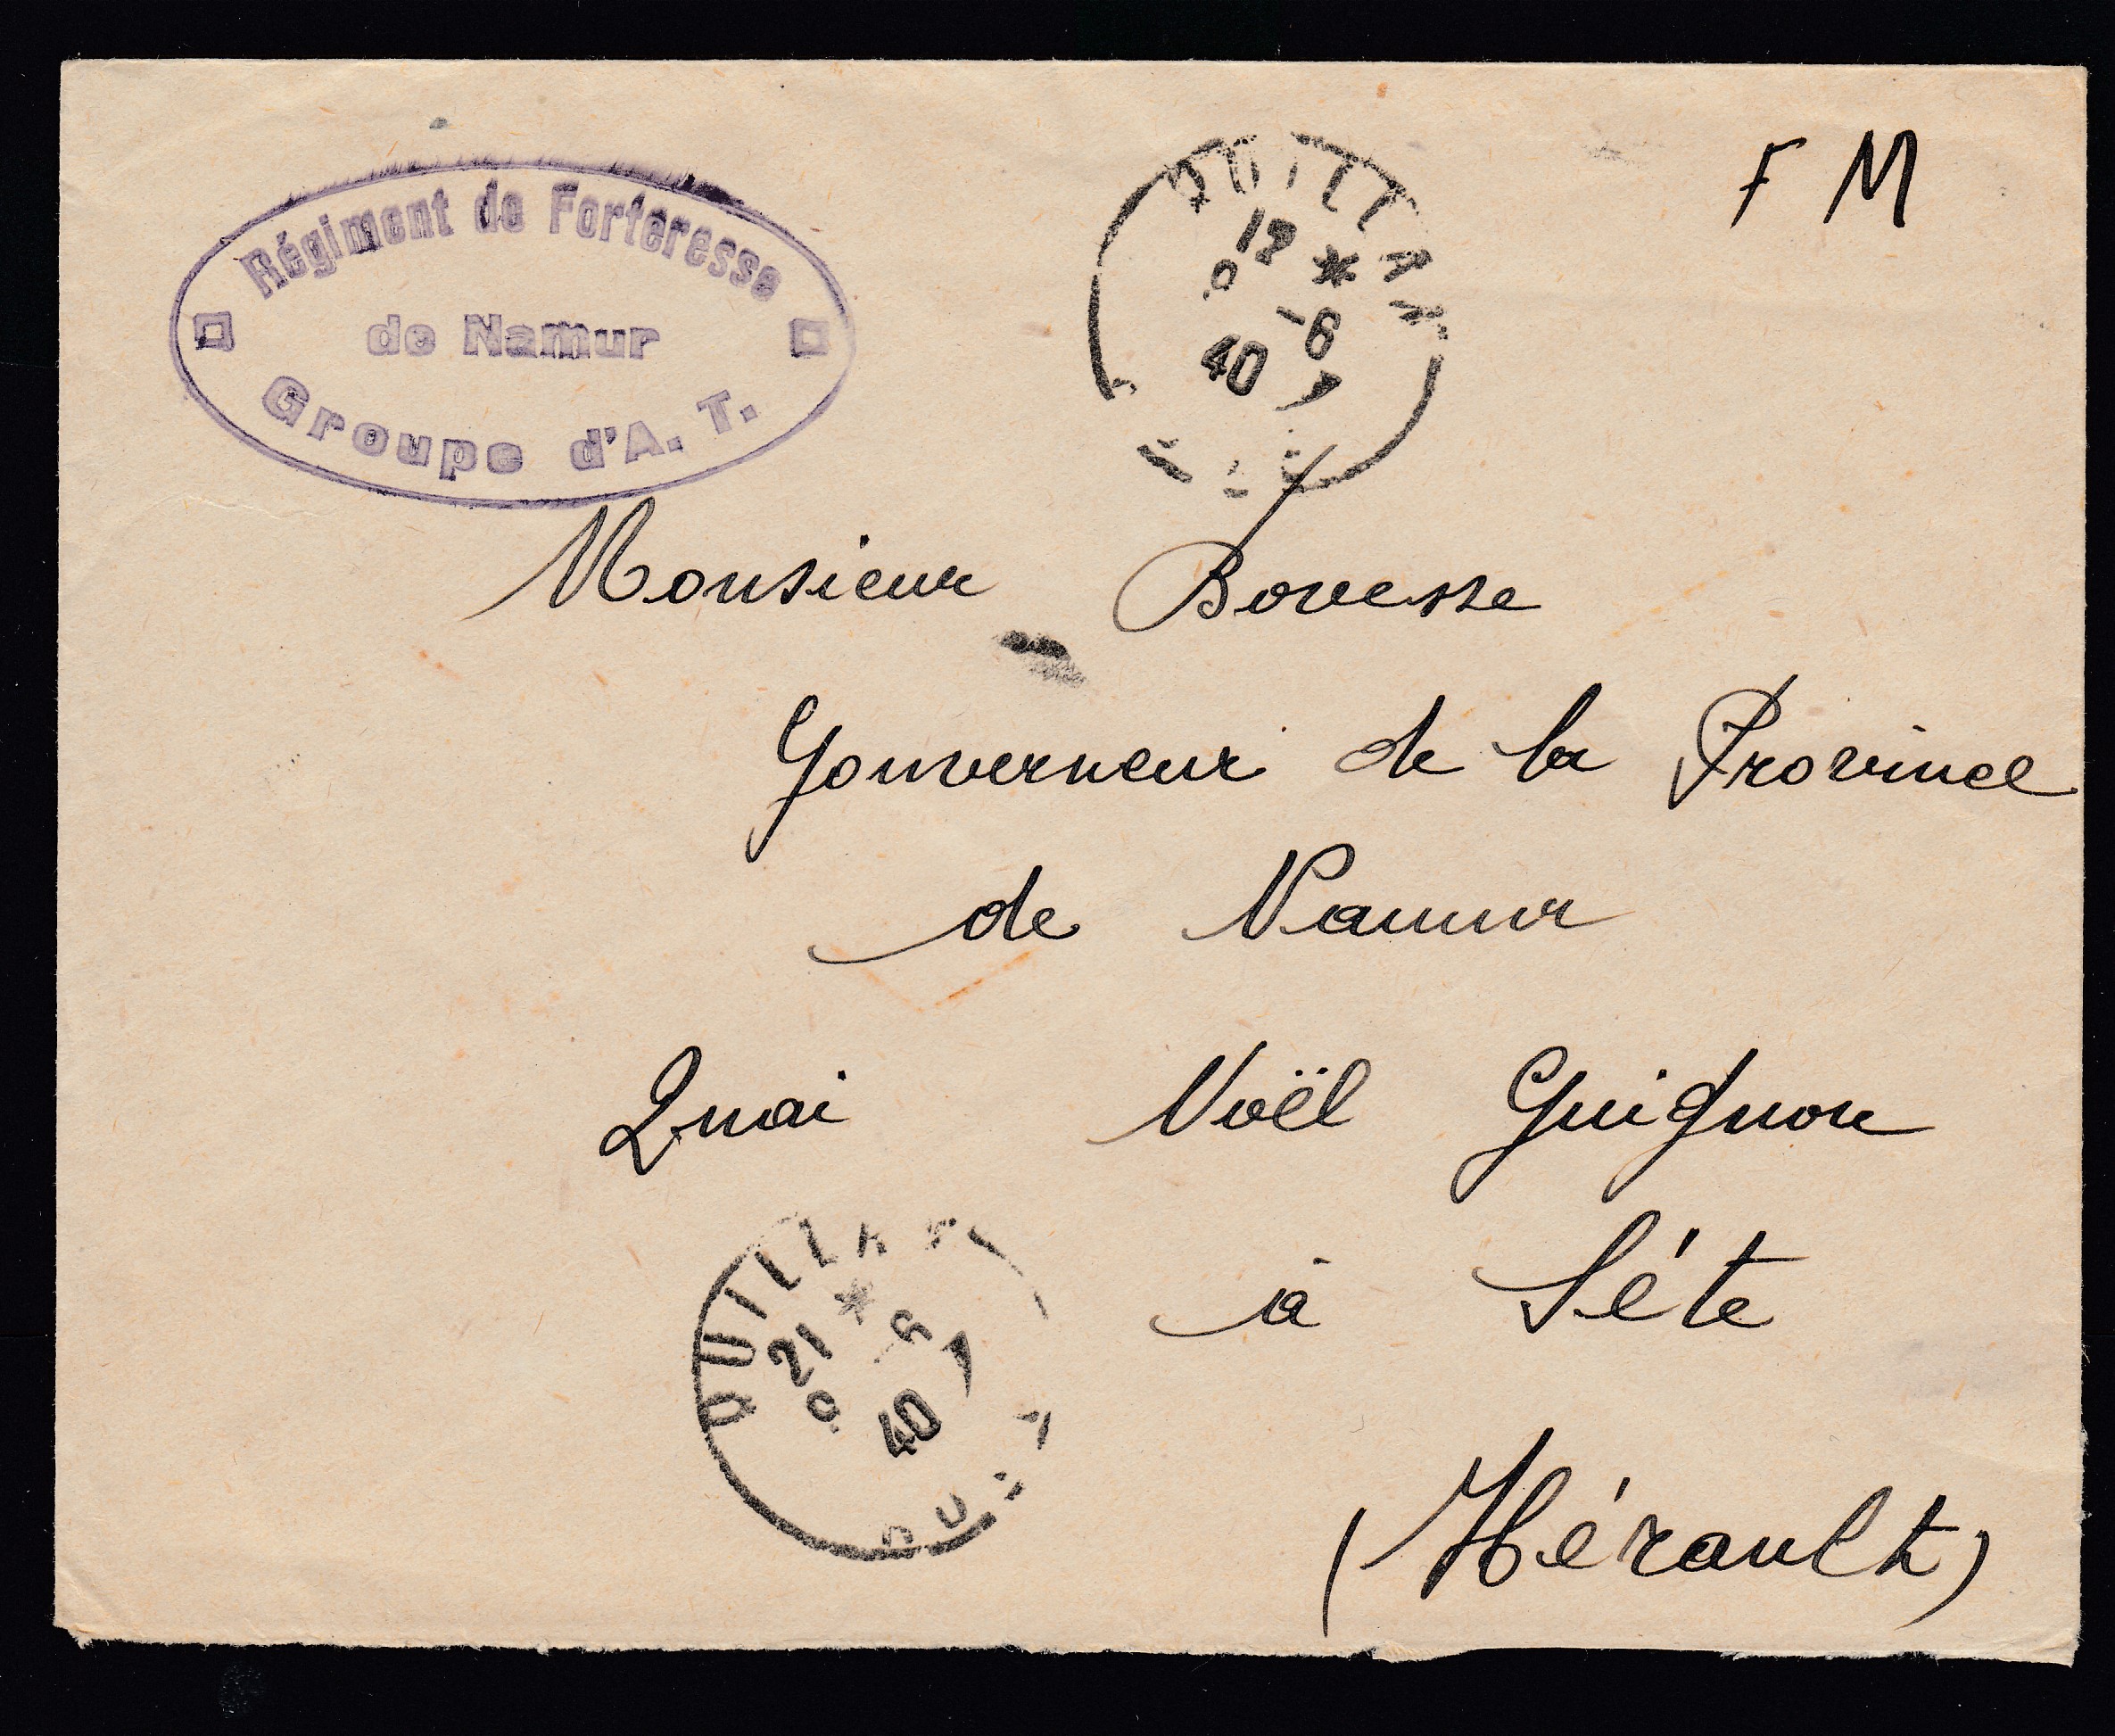 Régiment de Forteresse
de Namur
Groupe d'A. T.
QUILLAN
12 *
-6
40
F M
Monsieur Bovesse
Gouverneur de la Province
de Namur
Quai Noël Guignon
à Séte
(Hérault)
QUILLAN
21 *
-6
40